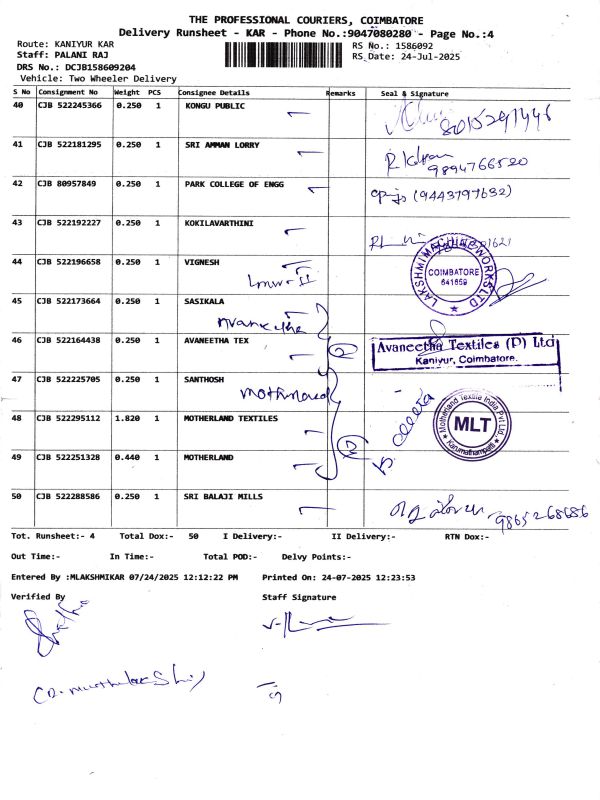 THE PROFESSIONAL COURIERS, COIMBATORE
Delivery Runsheet - KAR - Phone No.:9047080280 - Page No.:4
Route: KANIYUR KAR
Staff: PALANI RAJ
DRS No.: DCJB158609204
Vehicle: Two Wheeler Delivery
RS No.: 1586092
RS Date: 24-Jul-2025
S No Consignment No Weight PCS Consignee Details Remarks Seal & Signature
40 CJB 522245366 0.250 1 KONGU PUBLIC
41 CJB 522181295 0.250 1 SRI AMMAN LORRY
9894766520
42 CJB 80957849 0.250 1 PARK COLLEGE OF ENGG
(9443797632)
43 CJB 522192227 0.250 1 KOKILAVARTHINI
44 CJB 522196658 0.250 1 VIGNESH
Lmw-II
LAKSHMI MACHINE WORKS LTD
COIMBATORE
641659
45 CJB 522173664 0.250 1 SASIKALA
Avaneetha
46 CJB 522164438 0.250 1 AVANEETHA TEX
2
Avaneetha Textiles (P) Ltd
Kaniyur, Coimbatore.
47 CJB 522225705 0.250 1 SANTHOSH
motherland
48 CJB 522295112 1.820 1 MOTHERLAND TEXTILES
Motherland Textile India Pvt Ltd.
MLT
Karumathampatti
49 CJB 522251328 0.440 1 MOTHERLAND
50 CJB 522288586 0.250 1 SRI BALAJI MILLS
9865268686
Tot. Runsheet:- 4 Total Dox:- 50 I Delivery:- II Delivery:- RTN Dox:-
Out Time:- In Time:- Total POD:- Delvy Points:-
Entered By :MLAKSHMIKAR 07/24/2025 12:12:22 PM Printed On: 24-07-2025 12:23:53
Verified By Staff Signature